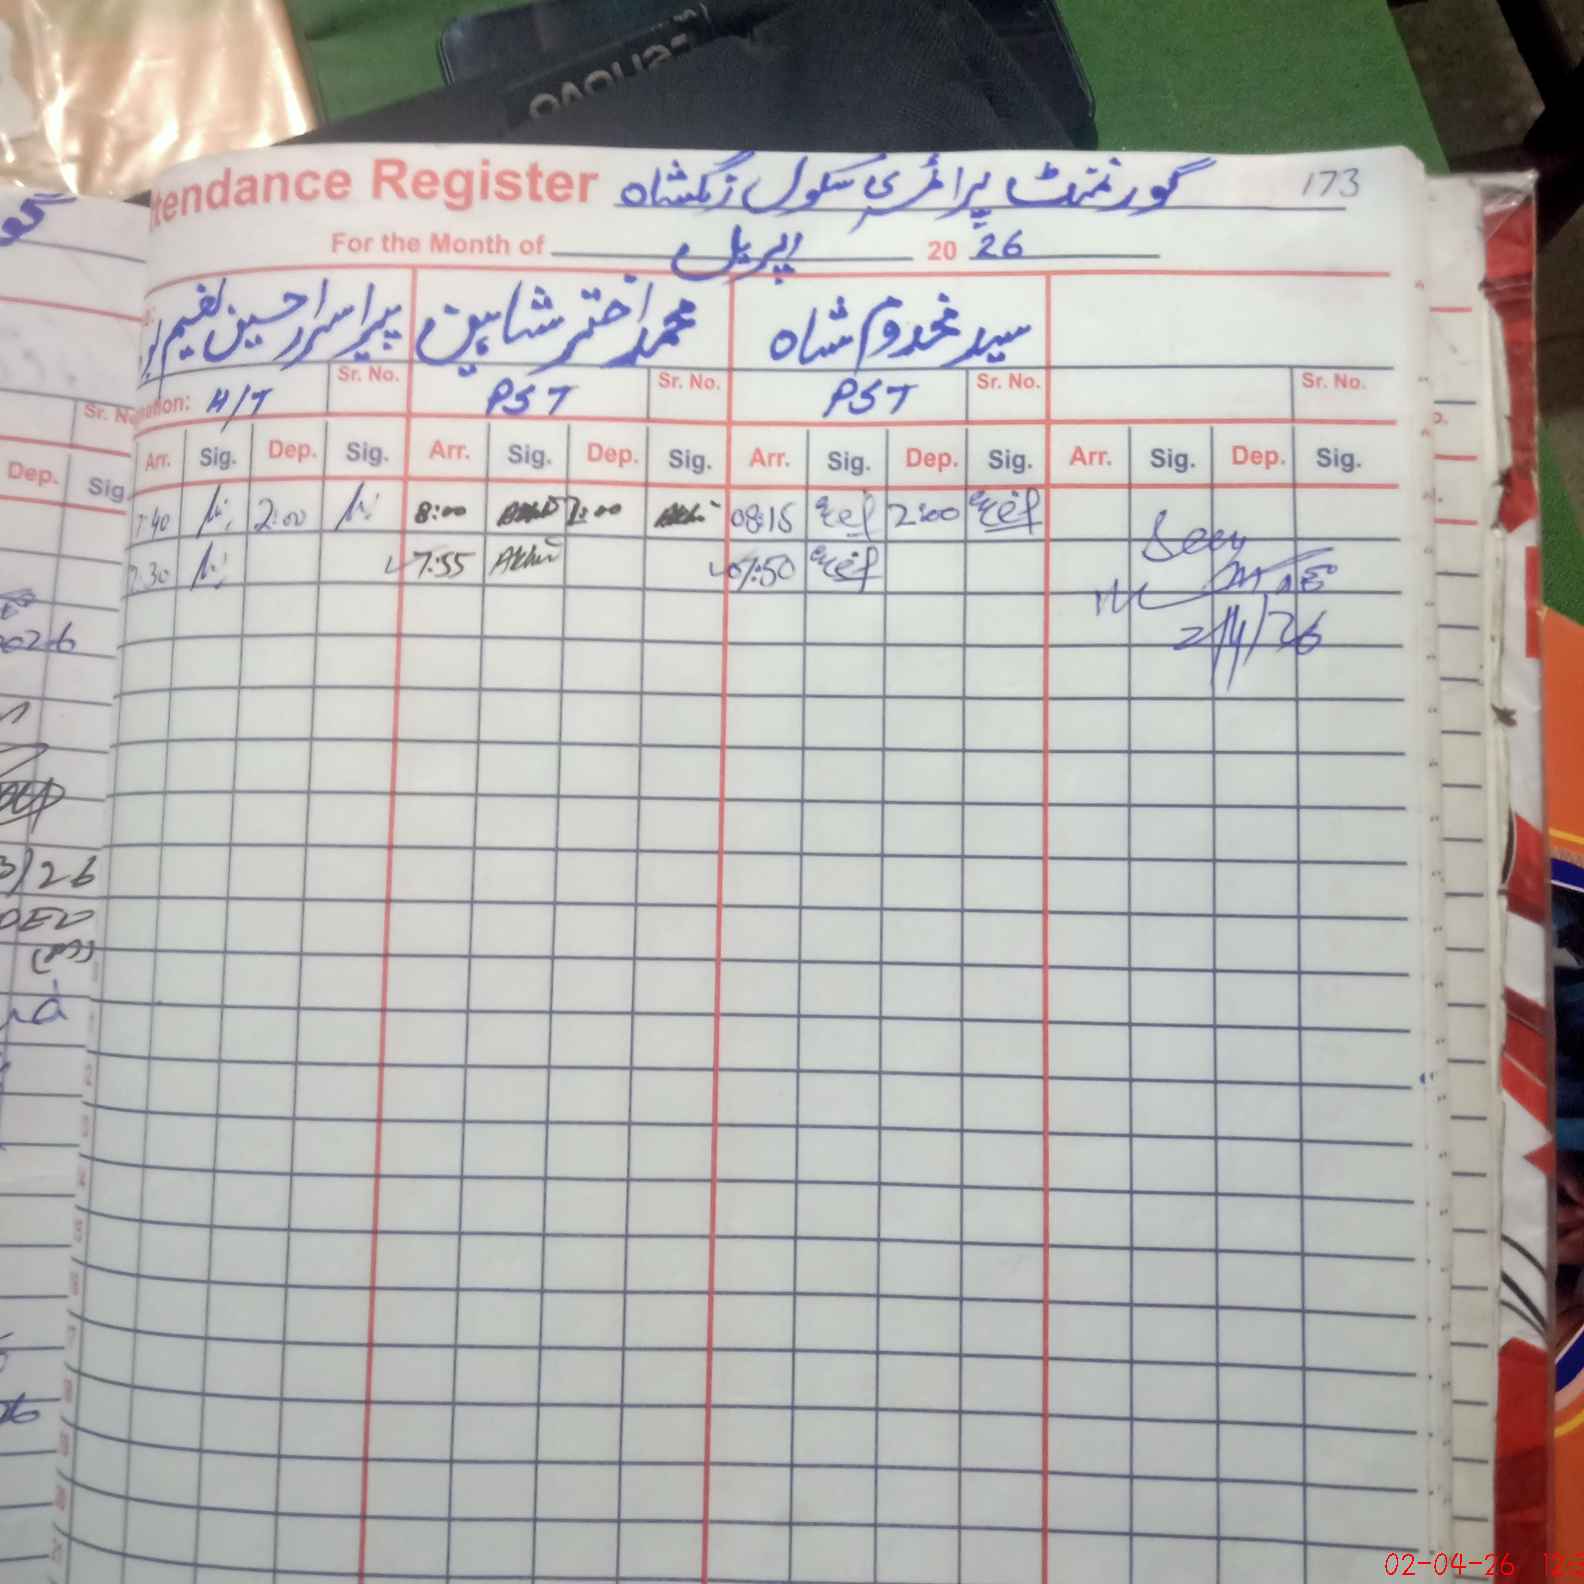 lenovo
tendance Register گورنمنٹ پرائمری سکول زنگشاہ 173
For the Month of اپریل 20 26
پیر اسرار حسین نعیم محمد اختر شاہین سید مخدوم شاہ
nation: H/T Sr. No. PST Sr. No. PST Sr. No. Sr. No.
Arr. Sig. Dep. Sig. Arr. Sig. Dep. Sig. Arr. Sig. Dep. Sig. Arr. Sig. Dep. Sig.
7:40 2:00 8:00 2:00 08:15 2:00
7:30 7:55 07:50
Seen
2/4/26
Sr. No
Dep. Sig.
2026
3/26
DEO
26
02-04-26 12: